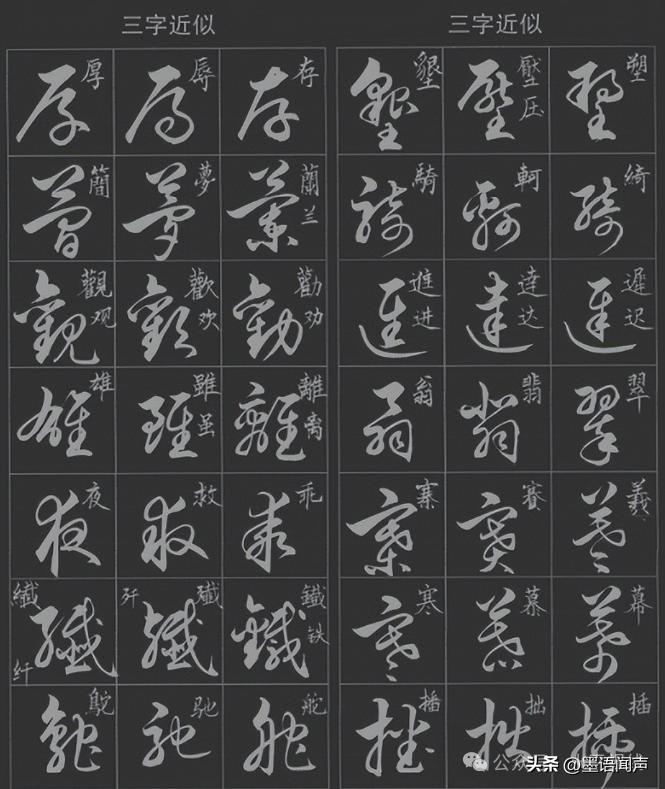 三字近似
厚 辱 存
簡 夢 蘭 兰
觀 观 歡 欢 勸 劝
雄 雖 虽 離 离
夜 救 乖
纖 纤 殲 歼 鐵 铁
鴕 驰 舵
三字近似
墾 壓 压 塑
騎 軻 綺
進 进 達 达 遲 迟
翁 翡 翠
寨 賽 羲
寒 慕 幕
播 拙 插
头条 @墨语闻声